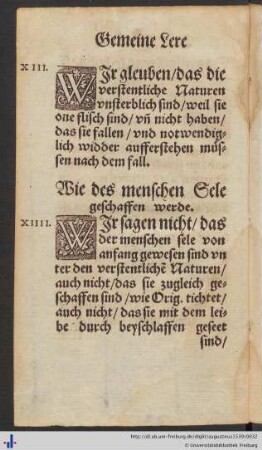 Gemeine Lere
XIII.
WIr gleuben / das die
verstentliche Naturen
vnsterblich sind / weil sie
one flisch sind / vn̄ nicht haben /
das sie fallen / vnd notwendig-
lich widder aufferstehen müs-
sen nach dem fall.
Wie des menschen Sele
geschaffen werde.
XIIII.
WIr sagen nicht / das
der menschen sele von
anfang gewesen sind vn
ter den verstentlichē Naturen /
auch nicht / das sie zugleich ge-
schaffen sind / wie Orig. tichtet /
auch nicht / das sie mit dem lei-
be durch beyschlaffen geseet
sind /
© Universitätsbibliothek Freiburg